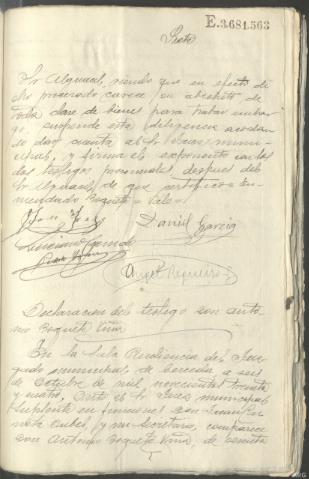 E.3.681.563
Siete
Sr Alguacil, viendo que en efecto di
cho procesado carece en absoluto de
toda clase de bienes para trabar embar
go, suspende esta diligencia acordan
do dar cuenta al Sr Juez muni
cipal, y firma el exponente con los
dos testigos presenciales despues del
Sr Alguacil de que certifico = En
mendado = Roquete = Vale =
Daniel Garcia
Luciano
Angel Regueiro
Declaracion del testigo don Anto
nio Roquete Viña
En la Sala Audiencia del Juz
gado municipal de a seis
de Octubre de mil novecientos treinta
y cuatro, ante el Sr Juez municipal
suplente en funciones don
y mi Secretario, comparece
don Antonio Roquete Viña, de